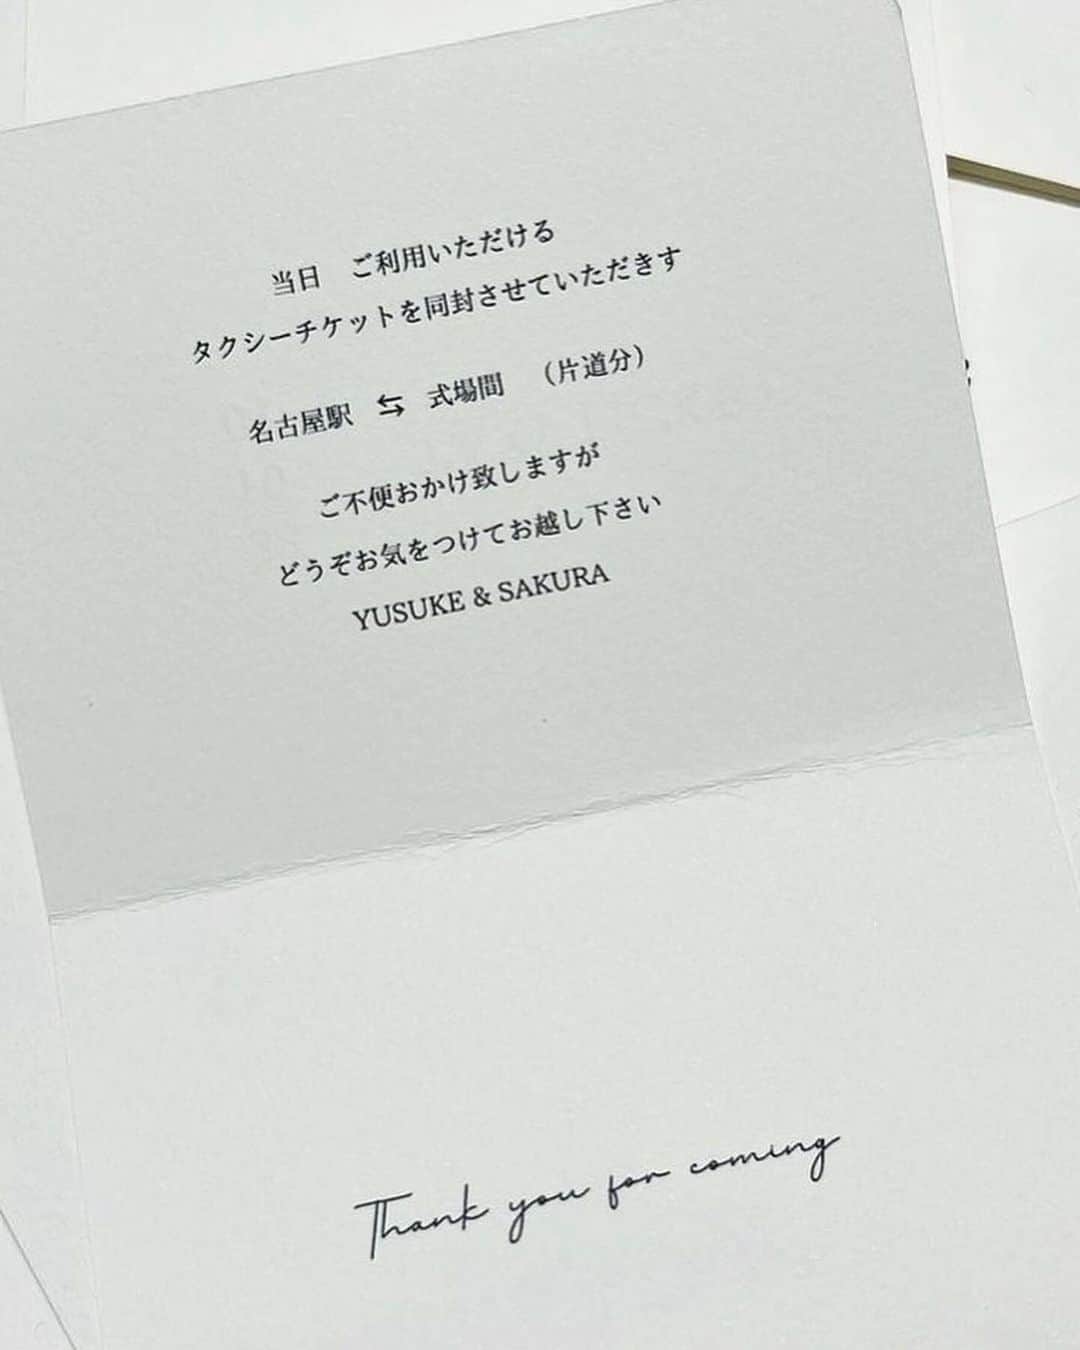 当日　ご利用いただける
タクシーチケットを同封させていただきす
名古屋駅 ⇆ 式場間　（片道分）
ご不便おかけ致しますが
どうぞお気をつけてお越し下さい
YUSUKE & SAKURA
Thank you for coming